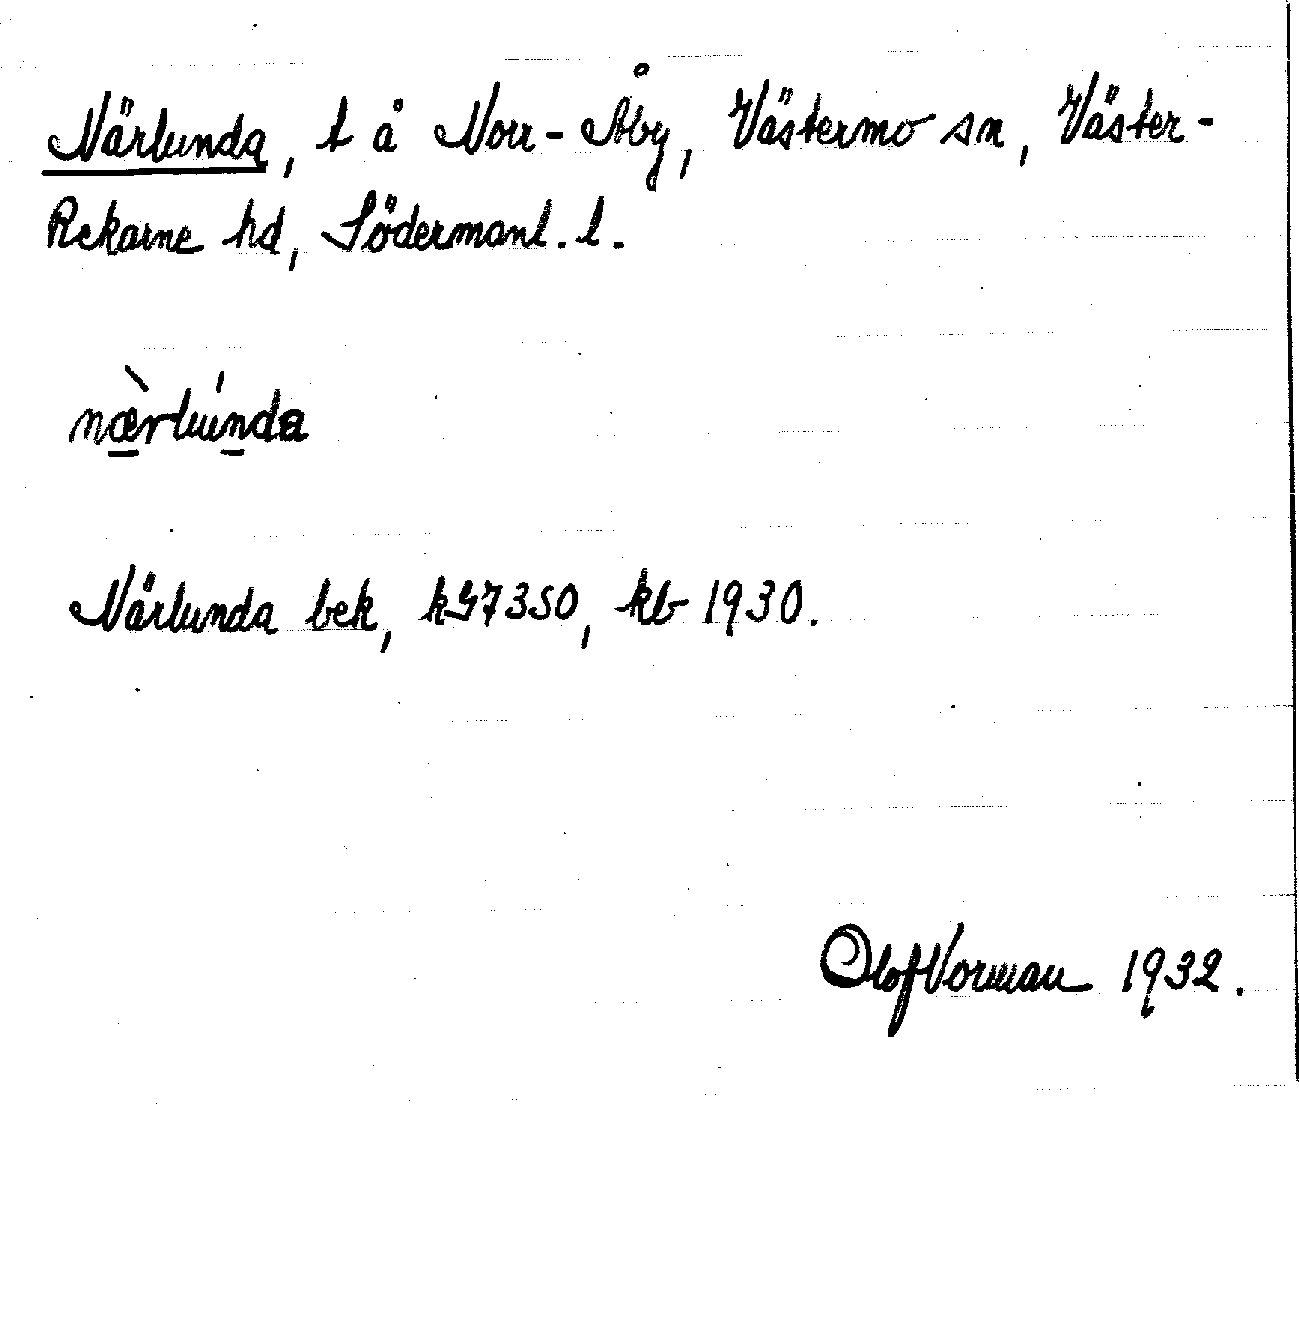 Närlunda, t å Norr-Åby, Västermo sn, Väster-
Rekarne hd, Södermanl. l.
næ̀rlúnda
Närlunda bek, kG7350, kb 1930.
Olof Vorman 1932.